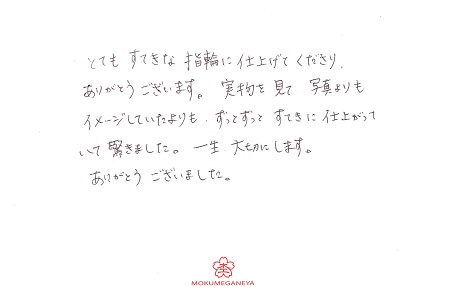 とても すてきな 指輪に仕上げてくださり、
ありがとうございます。 実物を見て 写真よりも
イメージしていたよりも、ずっとずっと すてきに 仕上がって
いて 驚きました。一生 大切にします。
ありがとう ございました。
MOKUMEGANEYA